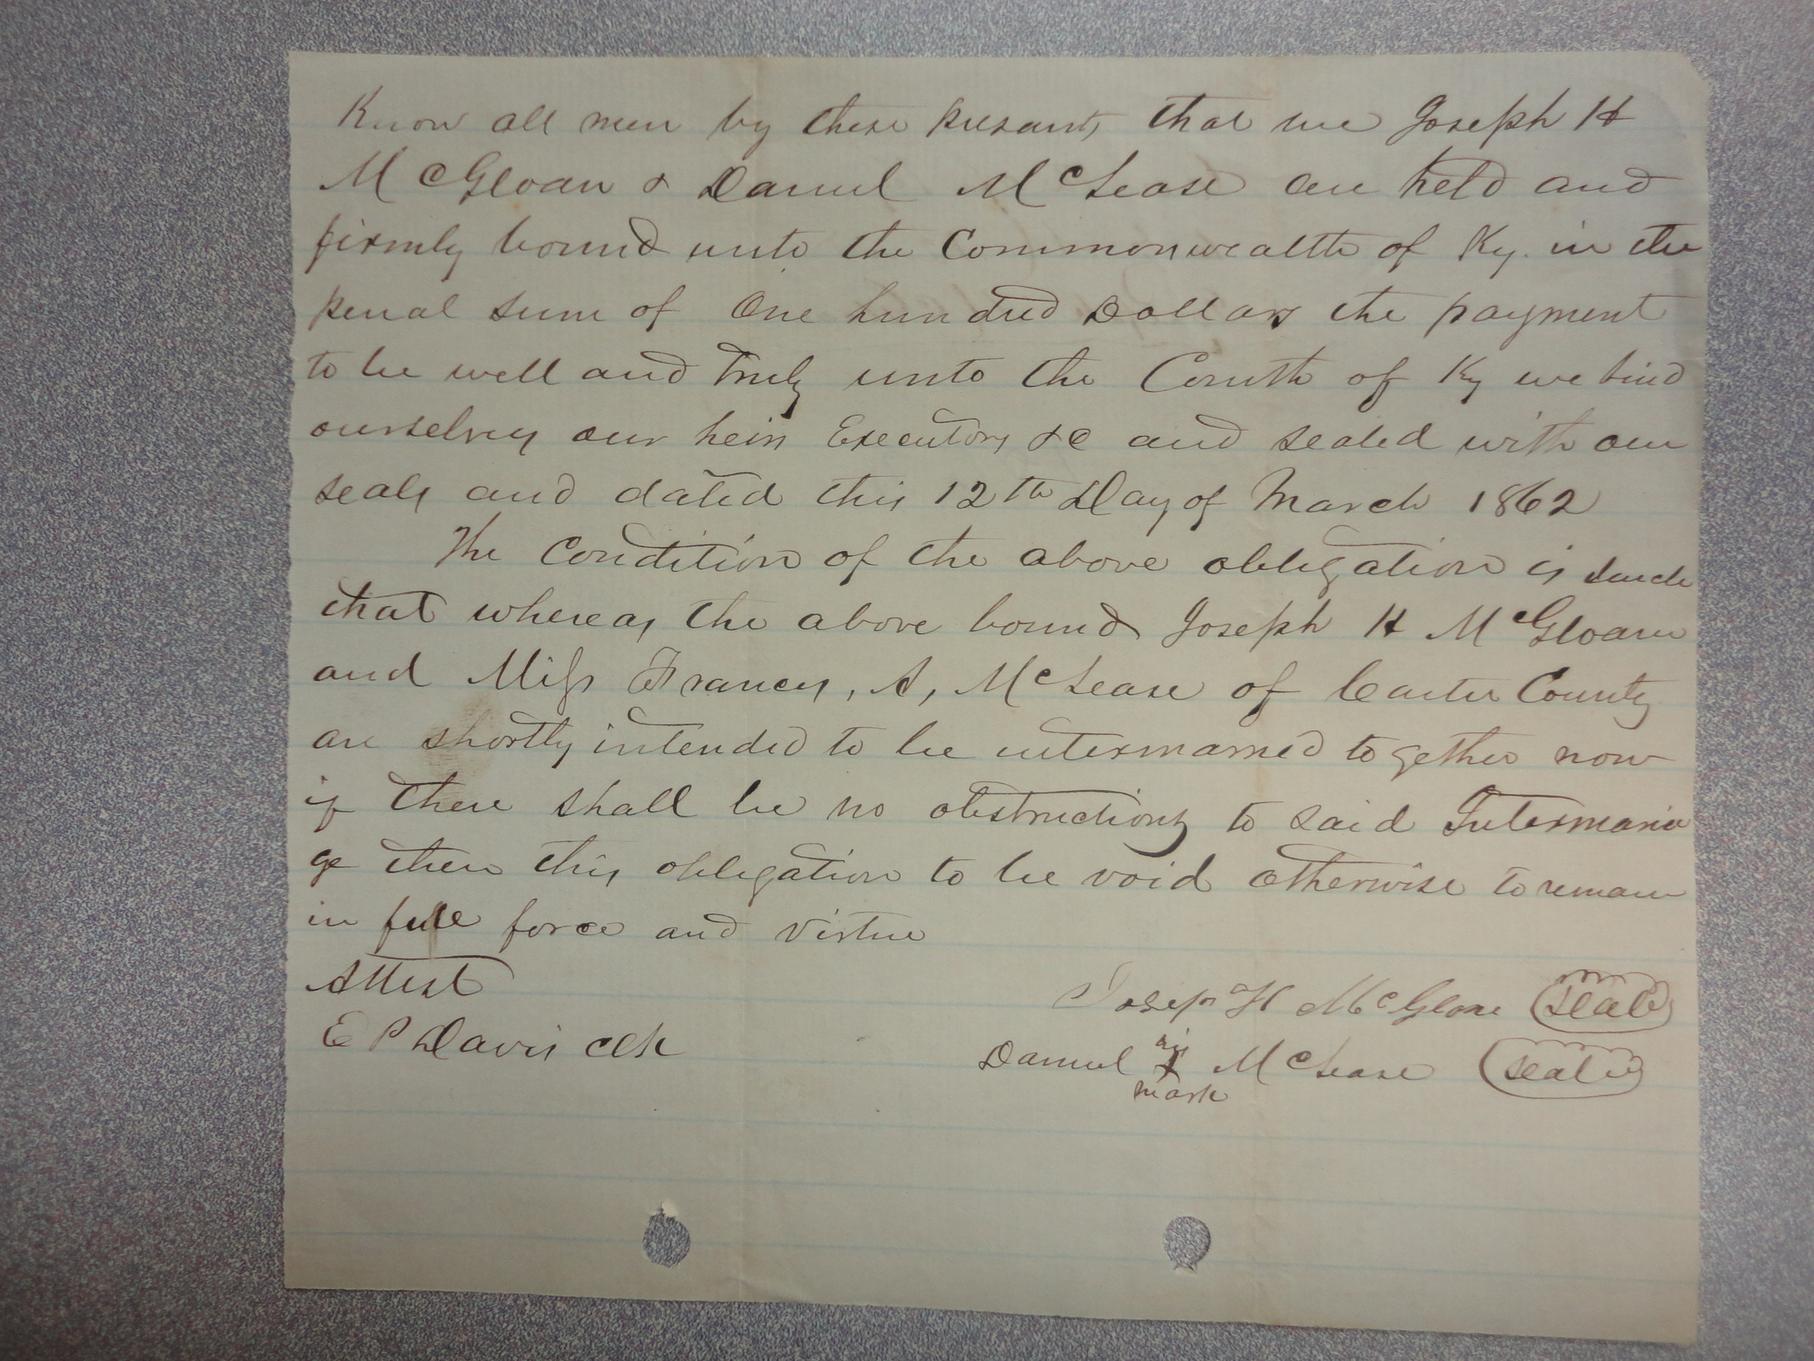 Know all men by these presents that we Joseph H
McGloan & Daniel McLease are held and
firmly bound unto the Commonwealth of Ky. in the
penal sum of One hundred Dollars the payment
to be well and truly unto the Comth of Ky we bind
ourselves our heirs Executors &C and sealed with our
seals and dated this 12th Day of March 1862
The Condition of the above obligation is such
that whereas the above bound Joseph H McGloan
and Miss Frances, A, McLease of Carter County
are shortly intended to be intermarried together now
if there shall be no obstructions to said Intermaria
ge then this obligation to be void otherwise to remain
in full force and virtue
Attest
Joseph H McGlone (seal)
E P Davis Clk
Daniel his X McLease (seal)
mark